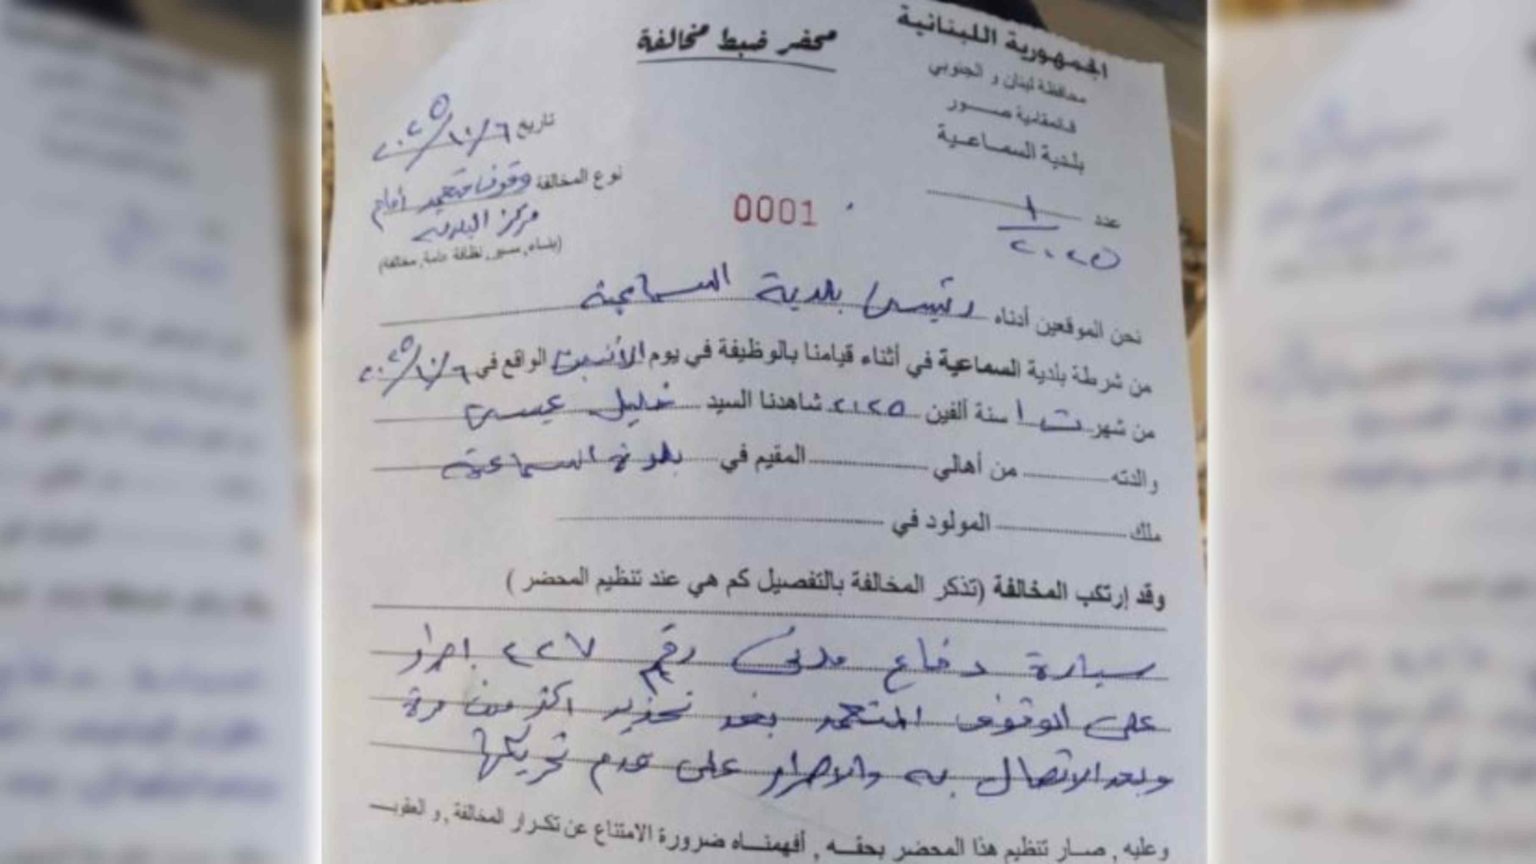 محضر ضبط مخالفة
الجمهورية اللبنانية
محافظة لبنان و الجنوبي
قائمقامية صور
بلدية السماعية
عدد ١ / ٢٠٢٥
0001
تاريخ ٢٠٢٥/١٠/٦
نوع المخالفة وقوف متعمد أمام
مركز البلدية
(بناء, سير, نظافة عامة, مخالفة)
نحن الموقعين أدناه رئيس بلدية السماعية
من شرطة بلدية السماعية في أثناء قيامنا بالوظيفة في يوم الأثنين الواقع في ٢٠٢٥/١٠/٦
من شهر ت١ سنة ألفين ٢٠٢٥ شاهدنا السيد خليل عيسى
والدته من أهالي المقيم في بلدة السماعية
ملك المولود في
وقد إرتكب المخالفة (تذكر المخالفة بالتفصيل كم هي عند تنظيم المحضر )
سيارة دفاع مدني رقم ٢٢٧ اصرار
على الوقوف المتعمد بعد تحذير اكثر من مرة
وبعد الاتصال به والاصرار على عدم تحريكها
وعليه , صار تنظيم هذا المحضر بحقه , أفهمناه ضرورة الامتناع عن تكرار المخالفة , و